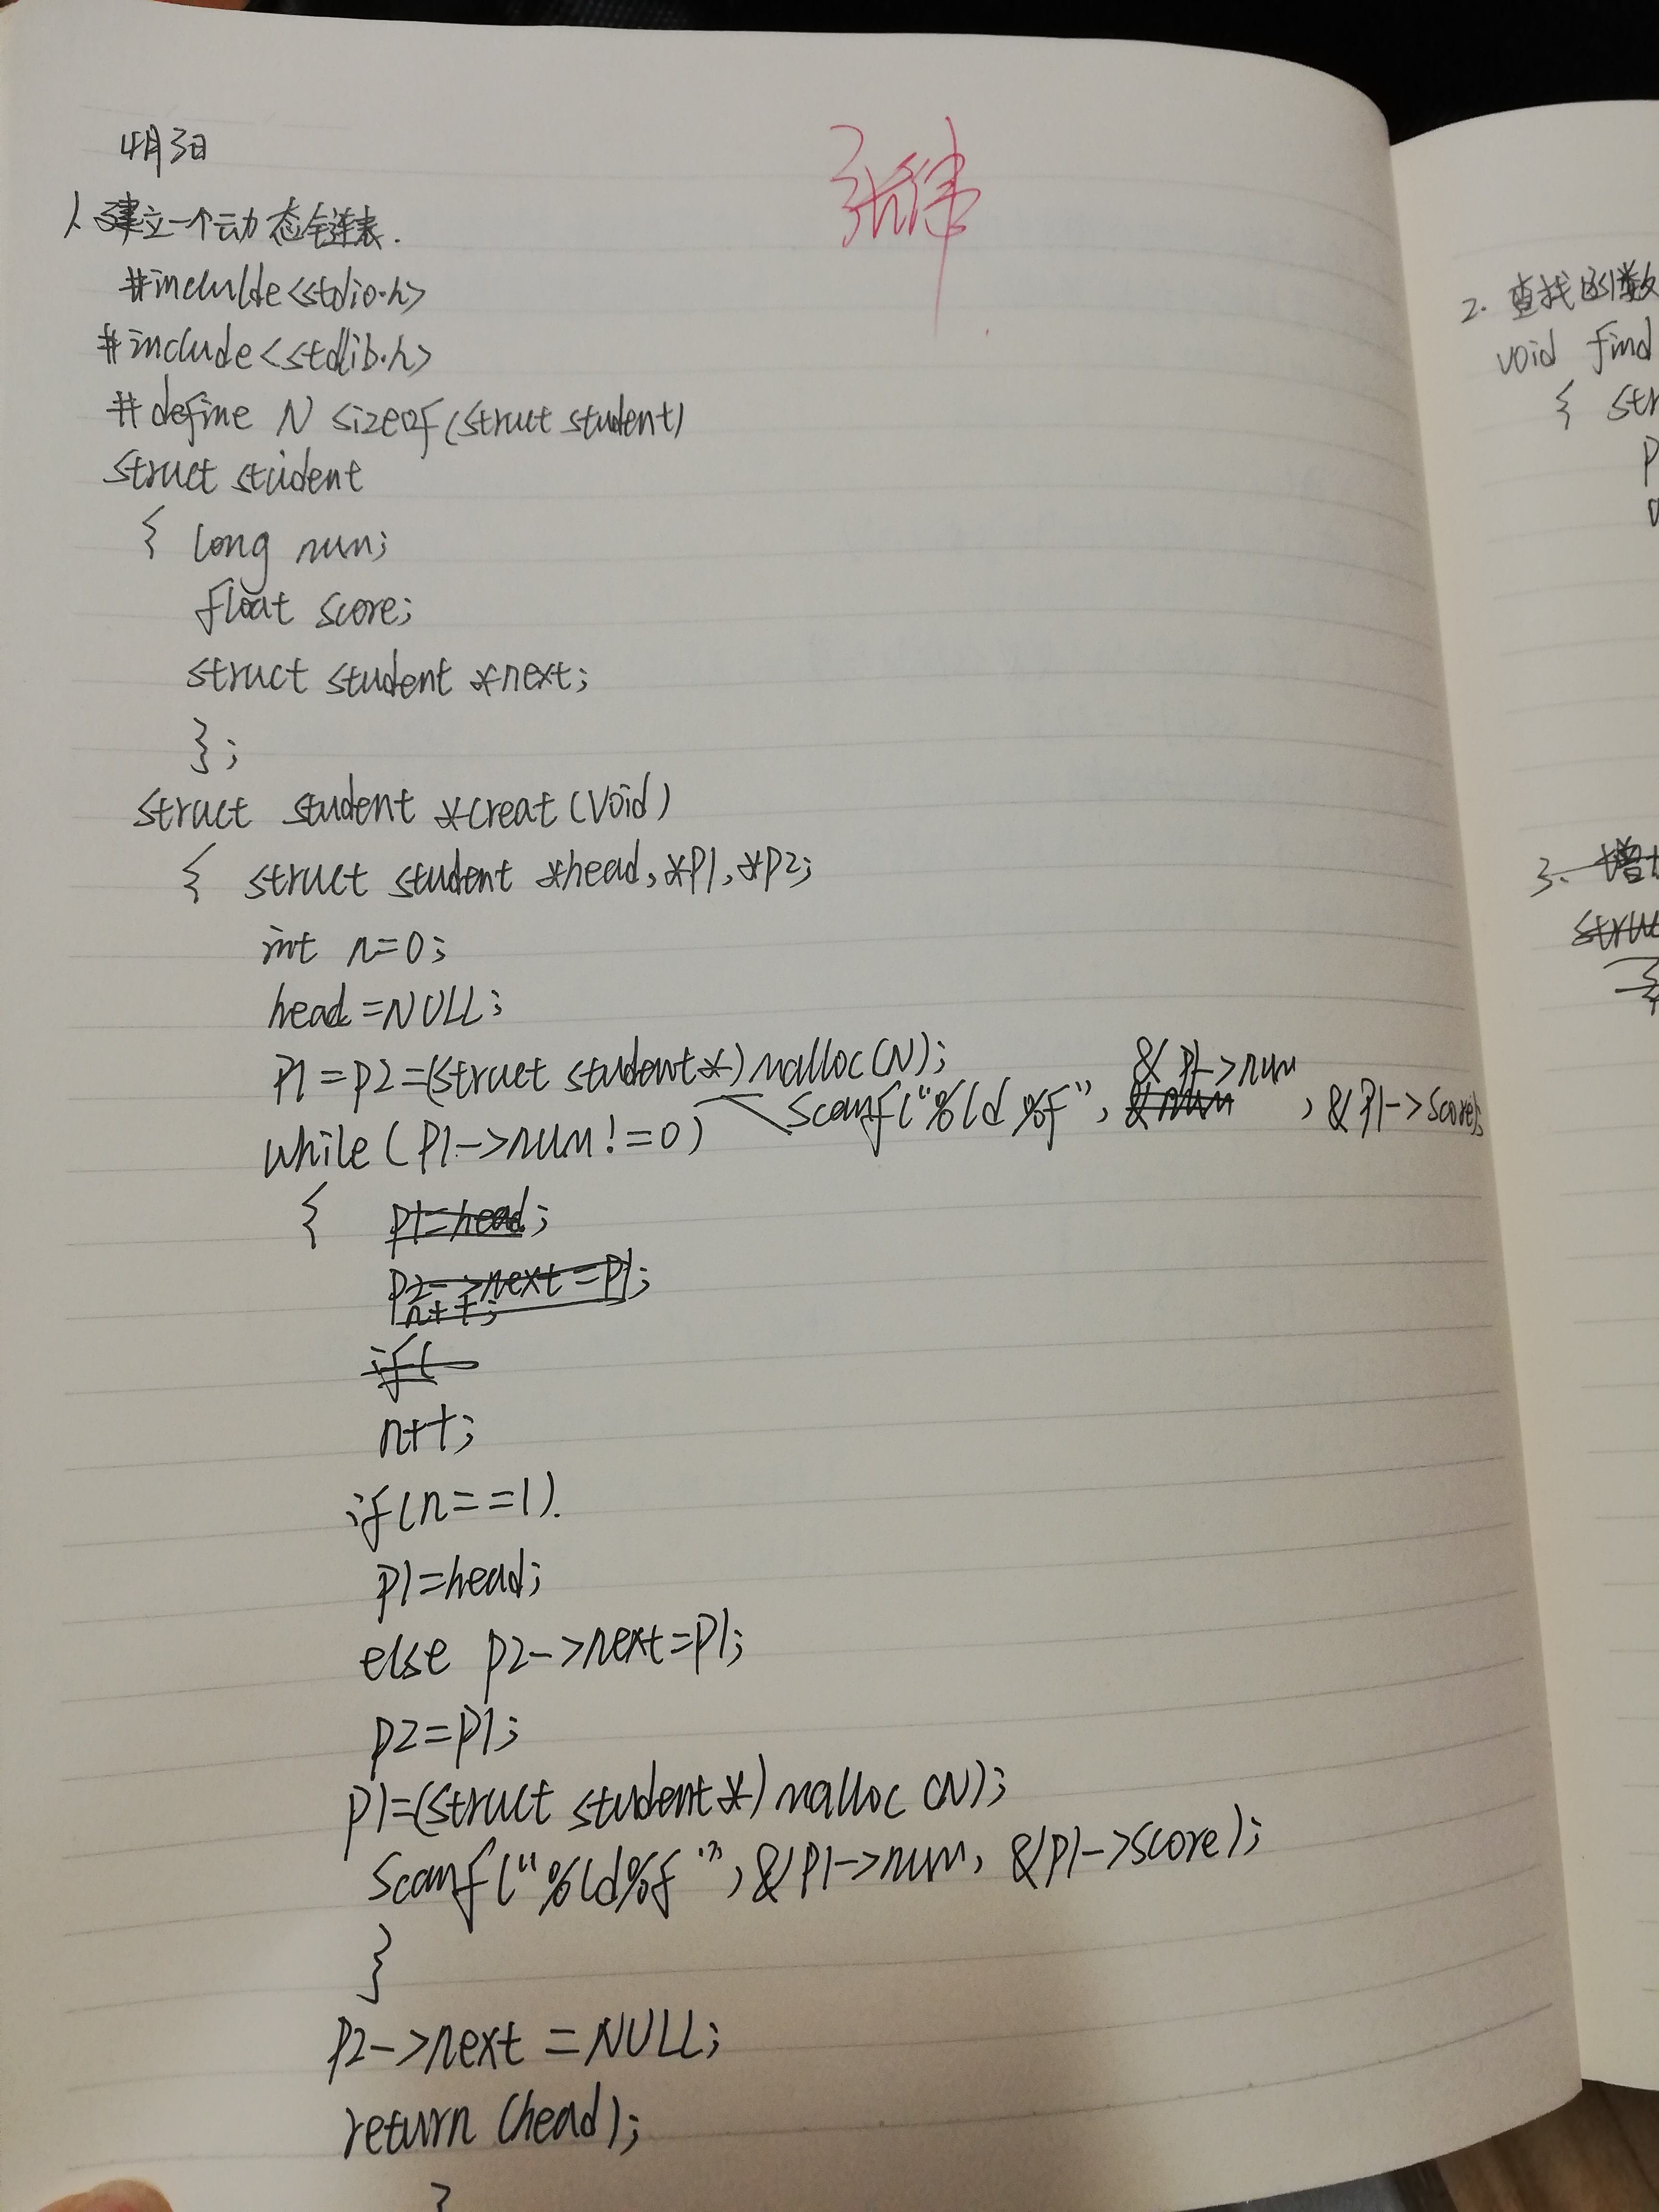 4月3日
张伟
1、建立一个动态链表.
#include<stdio.h>
#include<stdlib.h>
#define N sizeof(struct student)
struct student
{ long num;
float score;
struct student *next;
};
struct student *creat(void)
{ struct student *head,*p1,*p2;
int n=0;
head=NULL;
p1=p2=(struct student*)malloc(N);
scanf("%ld %f", &p1->num, &p1->score);
while(p1->num!=0)
{ p1=head;
p2->next=p1;
n++;
if(
n++;
if(n==1).
p1=head;
else p2->next=p1;
p2=p1;
p1=(struct student*)malloc(N);
scanf("%ld%f",&p1->num, &p1->score);
}
p2->next=NULL;
return(head);
}
2. 查找函数
void find
{ str
p
3、增
struc
{